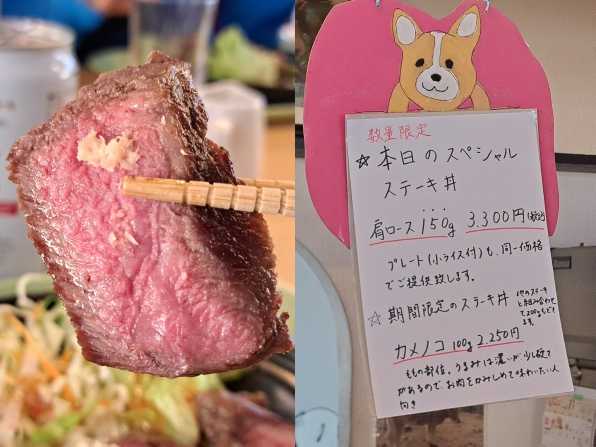 数量限定
☆本日のスペシャル
ステーキ丼
肩ロース150g 3.300円(税込)
プレート(小ライス付)も、同一価格
でご提供致します。
☆期間限定のステーキ丼
他のステーキ
と組み合わせ
て200gもできます。
カメノコ100g 2.250円
ももの部位。うまみは濃いが少し硬さ
があるので、お肉をかみしめて味わいたい人
向き